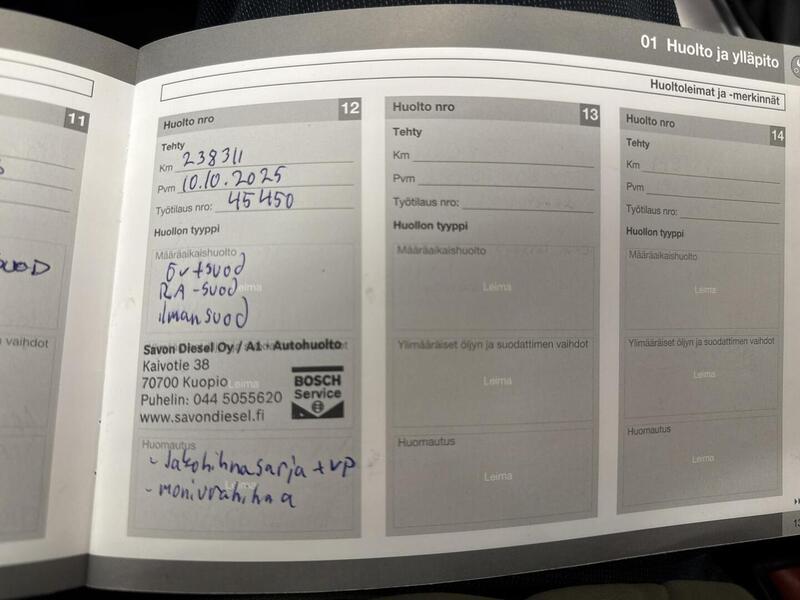 01 Huolto ja ylläpito
Huoltoleimat ja -merkinnät
11
vaihdot
Huolto nro 12
Tehty
Km 238311
Pvm 10.10.2025
Työtilaus nro: 45450
Huollon tyyppi
Määräaikaishuolto
öv+suod
RA-suod
Leima
ilmansuod
Savon Diesel Oy / A1 - Autohuolto
Kaivotie 38
70700 Kuopio
Leima
Puhelin: 044 5055620
www.savondiesel.fi
BOSCH
Service
Huomautus
- Jakohihnasarja + vp
Leima
- moniurahihna
Huolto nro 13
Tehty
Km
Pvm
Työtilaus nro:
Huollon tyyppi
Määräaikaishuolto
Leima
Ylimääräiset öljyn ja suodattimen vaihdot
Leima
Huomautus
Leima
Huolto nro 14
Tehty
Km
Pvm
Työtilaus nro:
Huollon tyyppi
Määräaikaishuolto
Leima
Ylimääräiset öljyn ja suodattimen vaihdot
Leima
Huomautus
Leima